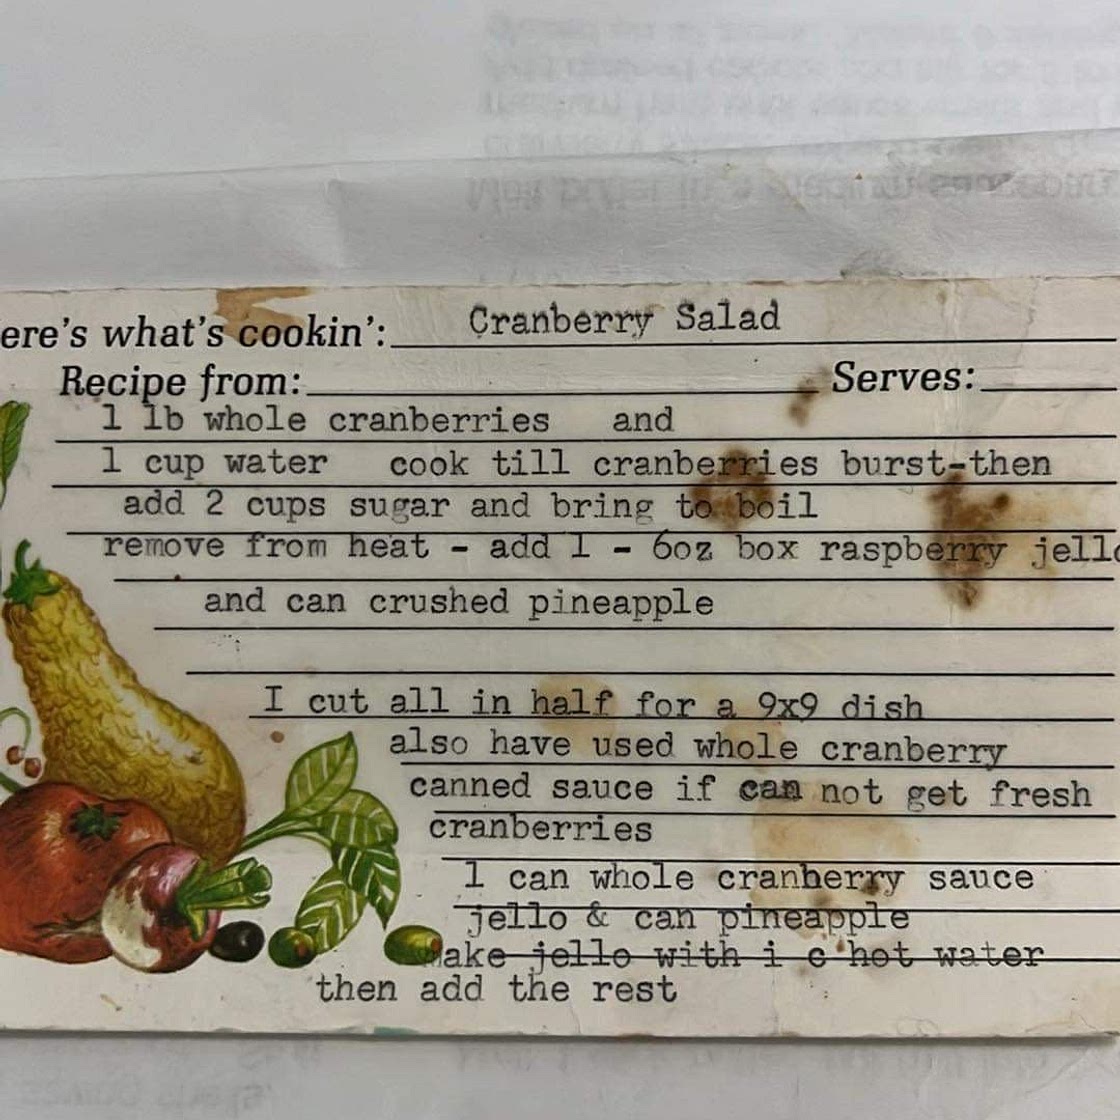 ere's what's cookin': Cranberry Salad
Recipe from: Serves:
1 lb whole cranberries and
1 cup water cook till cranberries burst-then
add 2 cups sugar and bring to boil
remove from heat - add 1 - 6oz box raspberry jello
and can crushed pineapple
I cut all in half for a 9x9 dish
also have used whole cranberry
canned sauce if can not get fresh
cranberries
1 can whole cranberry sauce
jello & can pineapple
make jello with 1 c hot water
then add the rest